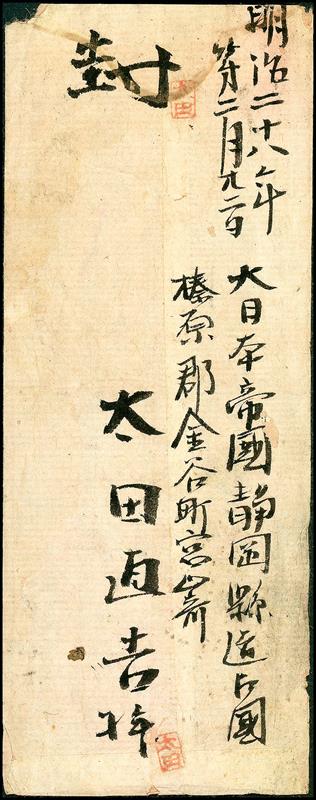 明治二十八年
第二月
大日本帝國静岡縣遠江國
榛原郡金谷町宮崎
封
太田
太田直吉拝
太田